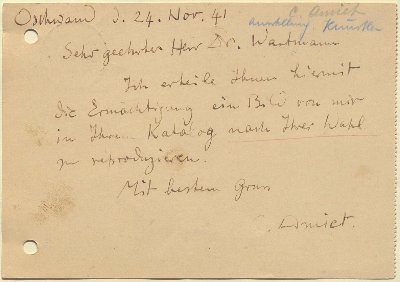 Oschwand d. 24. Nov. 41
C. Amiet
Ausstellung Künstler
Sehr geehrter Herr Dr. Wartmann
Ich erteile Ihnen hiermit
die Ermächtigung ein Bild von mir
in Ihrem Katalog nach Ihrer Wahl
zu reproduzieren.
Mit bestem Gruss
C. Amiet.